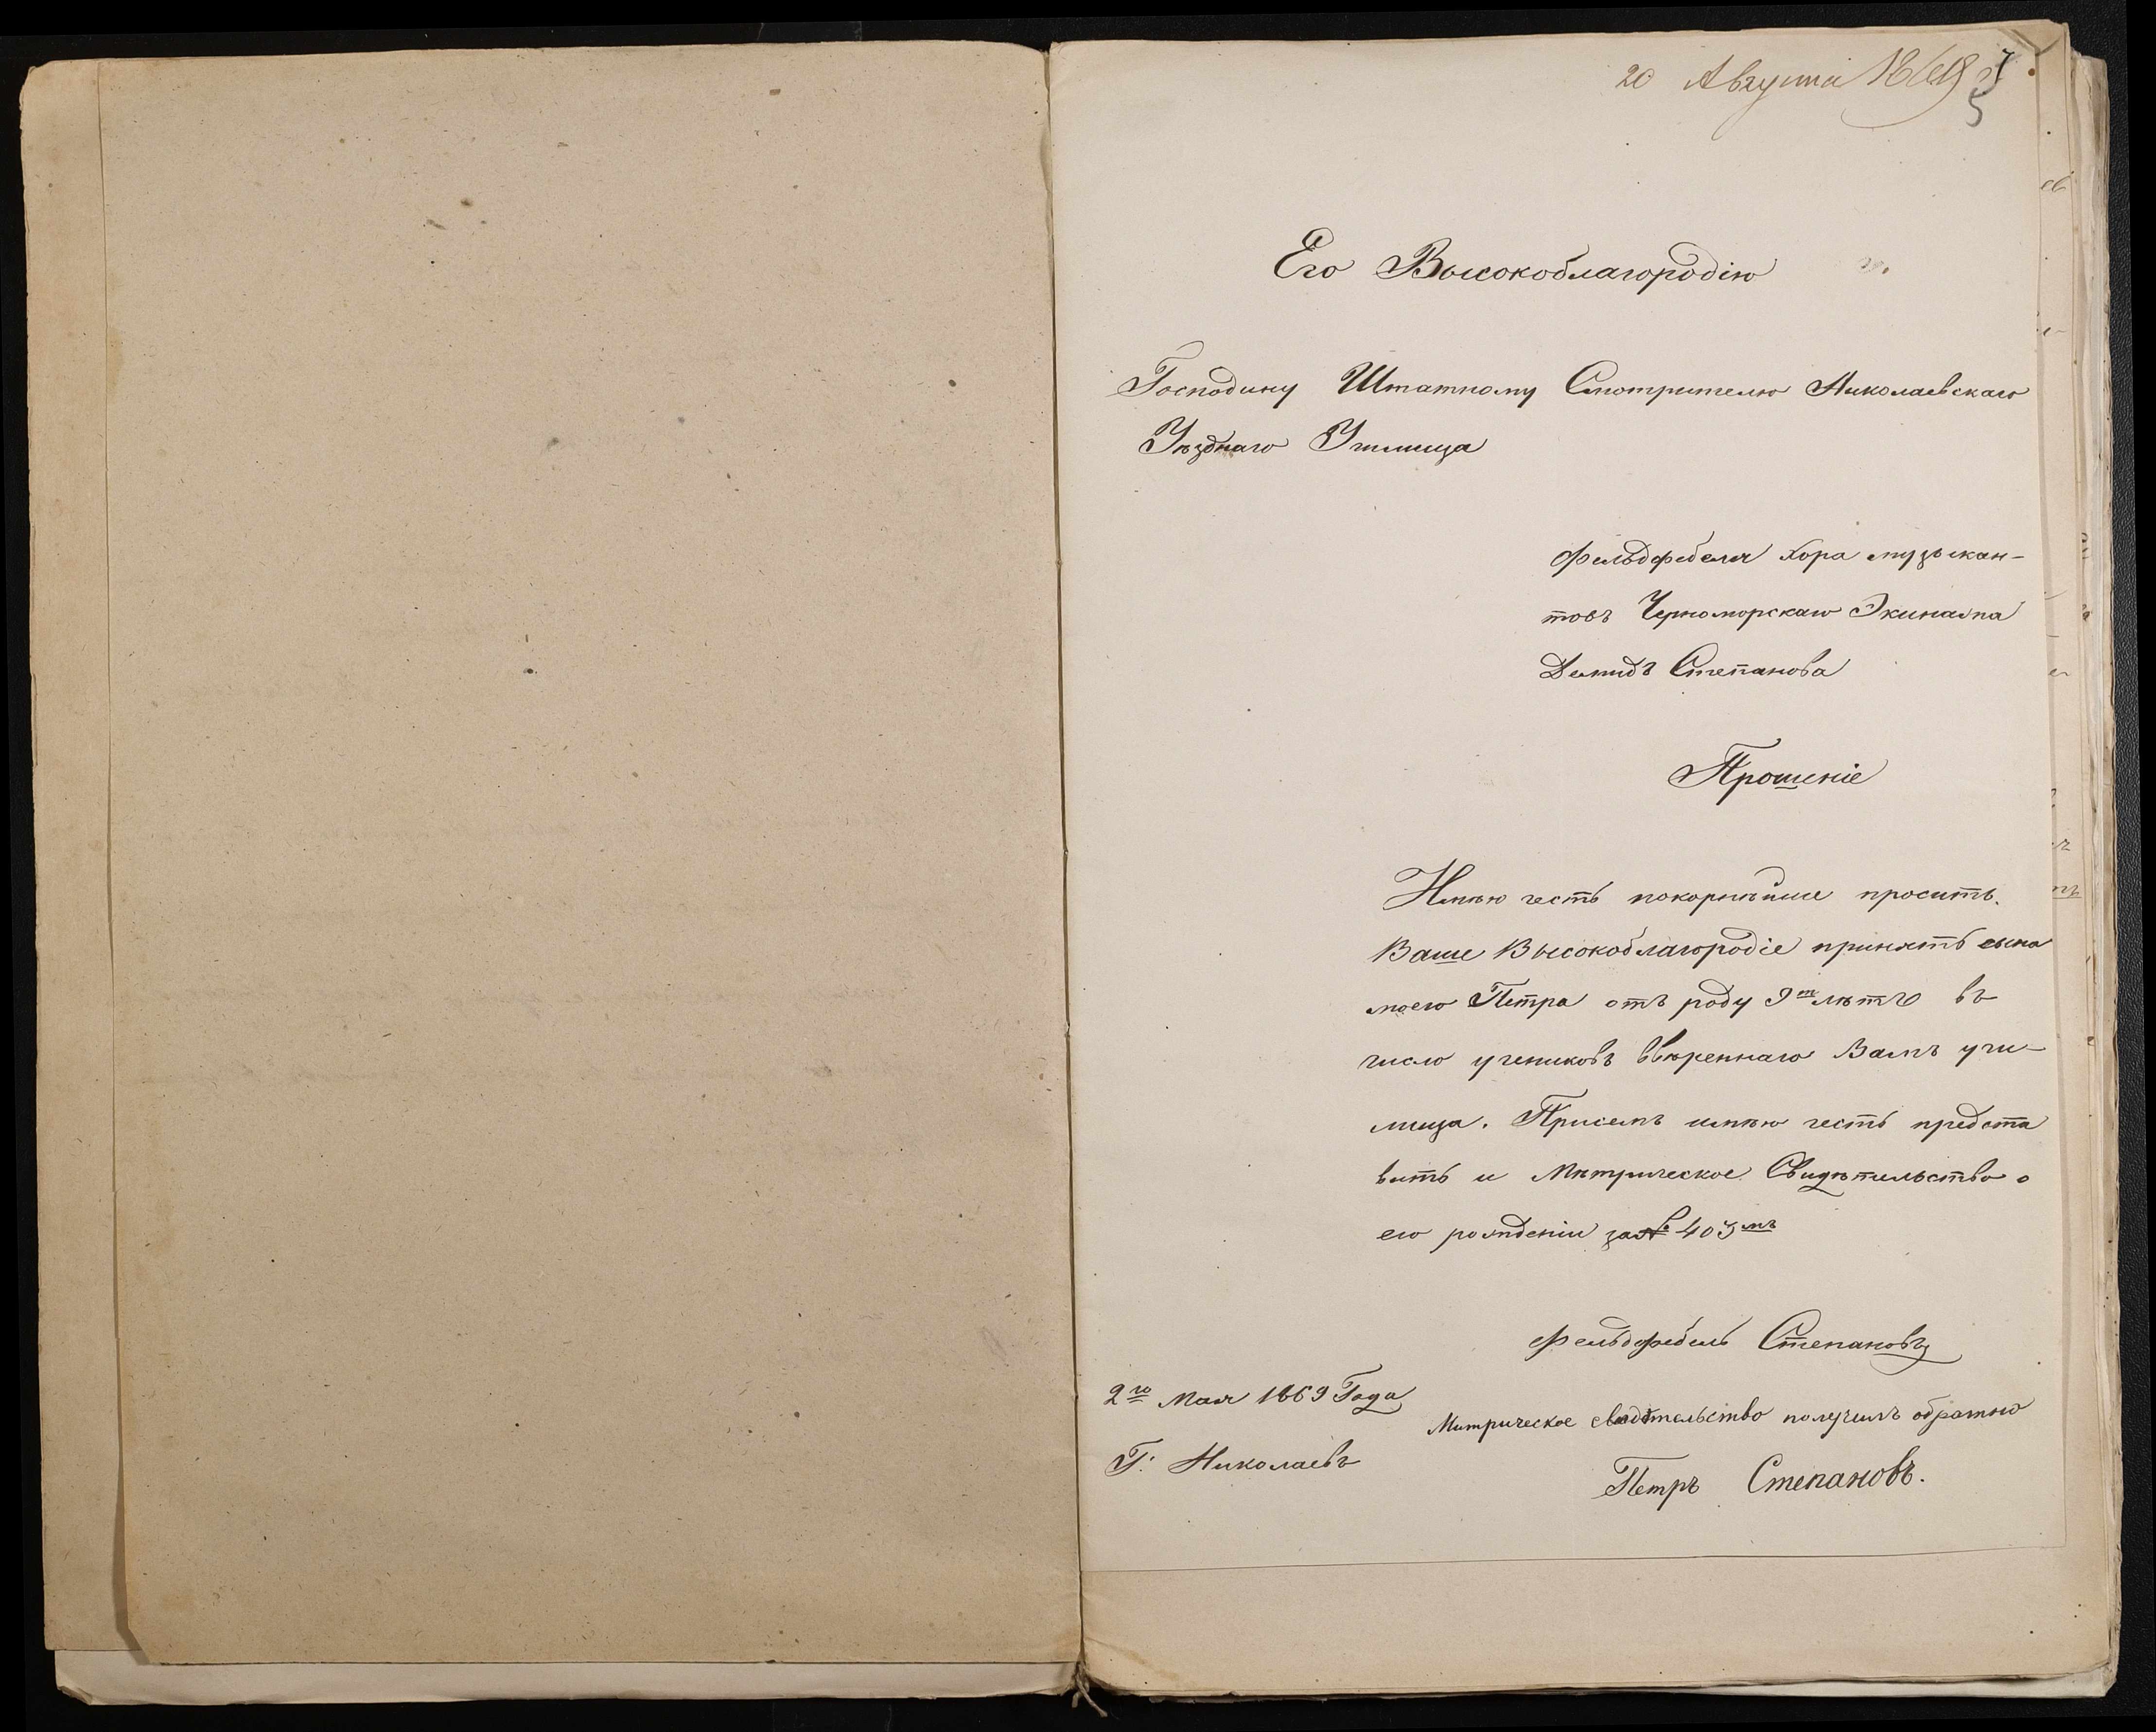 20 Августа 1869
5
Его Высокоблагородію
Господину Штатному Смотрителю Николаевскаго
Уѣзднаго Училища
Фельдфебеля хора музыкан-
товъ Черноморскаго Экипажа
Демидъ Степанова
Прошеніе
Имѣю честь покорнѣйше просить.
Ваше Высокоблагородіе принять сына
моего Петра отъ роду 9ᵐ лѣтъ въ
число учениковъ ввѣреннаго Вамъ учи-
лища. Присемъ имѣю честь предста
вить и Мѣтрическое Свидѣтельство о
его рожденіи за № 403мъ
Фельдфебель Степановъ
2го Мая 1869 Года
Г. Николаевъ
Митрическое свидѣтельство получилъ обратно
Петръ Степановъ.